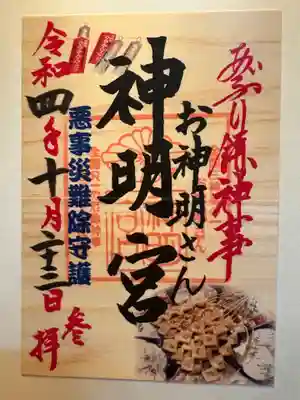 あぶり餅神事
お神明さん
神明宮
悪事災難除守護
令和四年十月二十三日
参拝